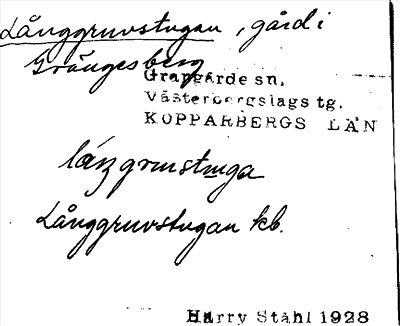 Långgruvstugan, gård i
Grängesberg
Grangärde sn.
Västerbergslags tg.
KOPPARBERGS LÄN
låŋgruvstuga
Långgruvstugan kb.
Harry Ståhl 1928